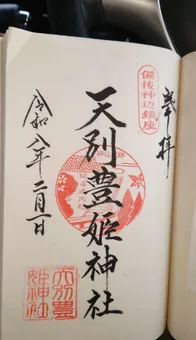 奉拝
備後神辺鎮座
天別豊姫神社
令和八年二月一日
天別豊
姫神社